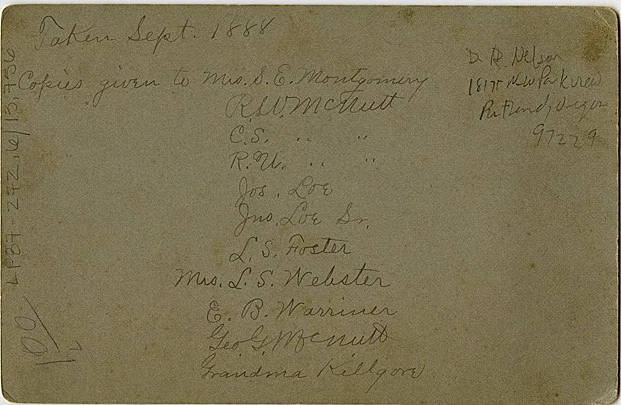 Taken Sept. 1888
Copies given to Mrs. S. E. Montgomery
R. W. McNutt
C. S. " "
R. U. " "
Jos. Loe
Jno. Loe Sr.
L. S. Foster
Mrs. L. S. Webster
E. B. Warriner
Geo G. McNutt
Grandma Killgore
D. R. Nelson
1817 NW Parkview
Portland, Oregon
97229
LP37-272.6/13,736
100